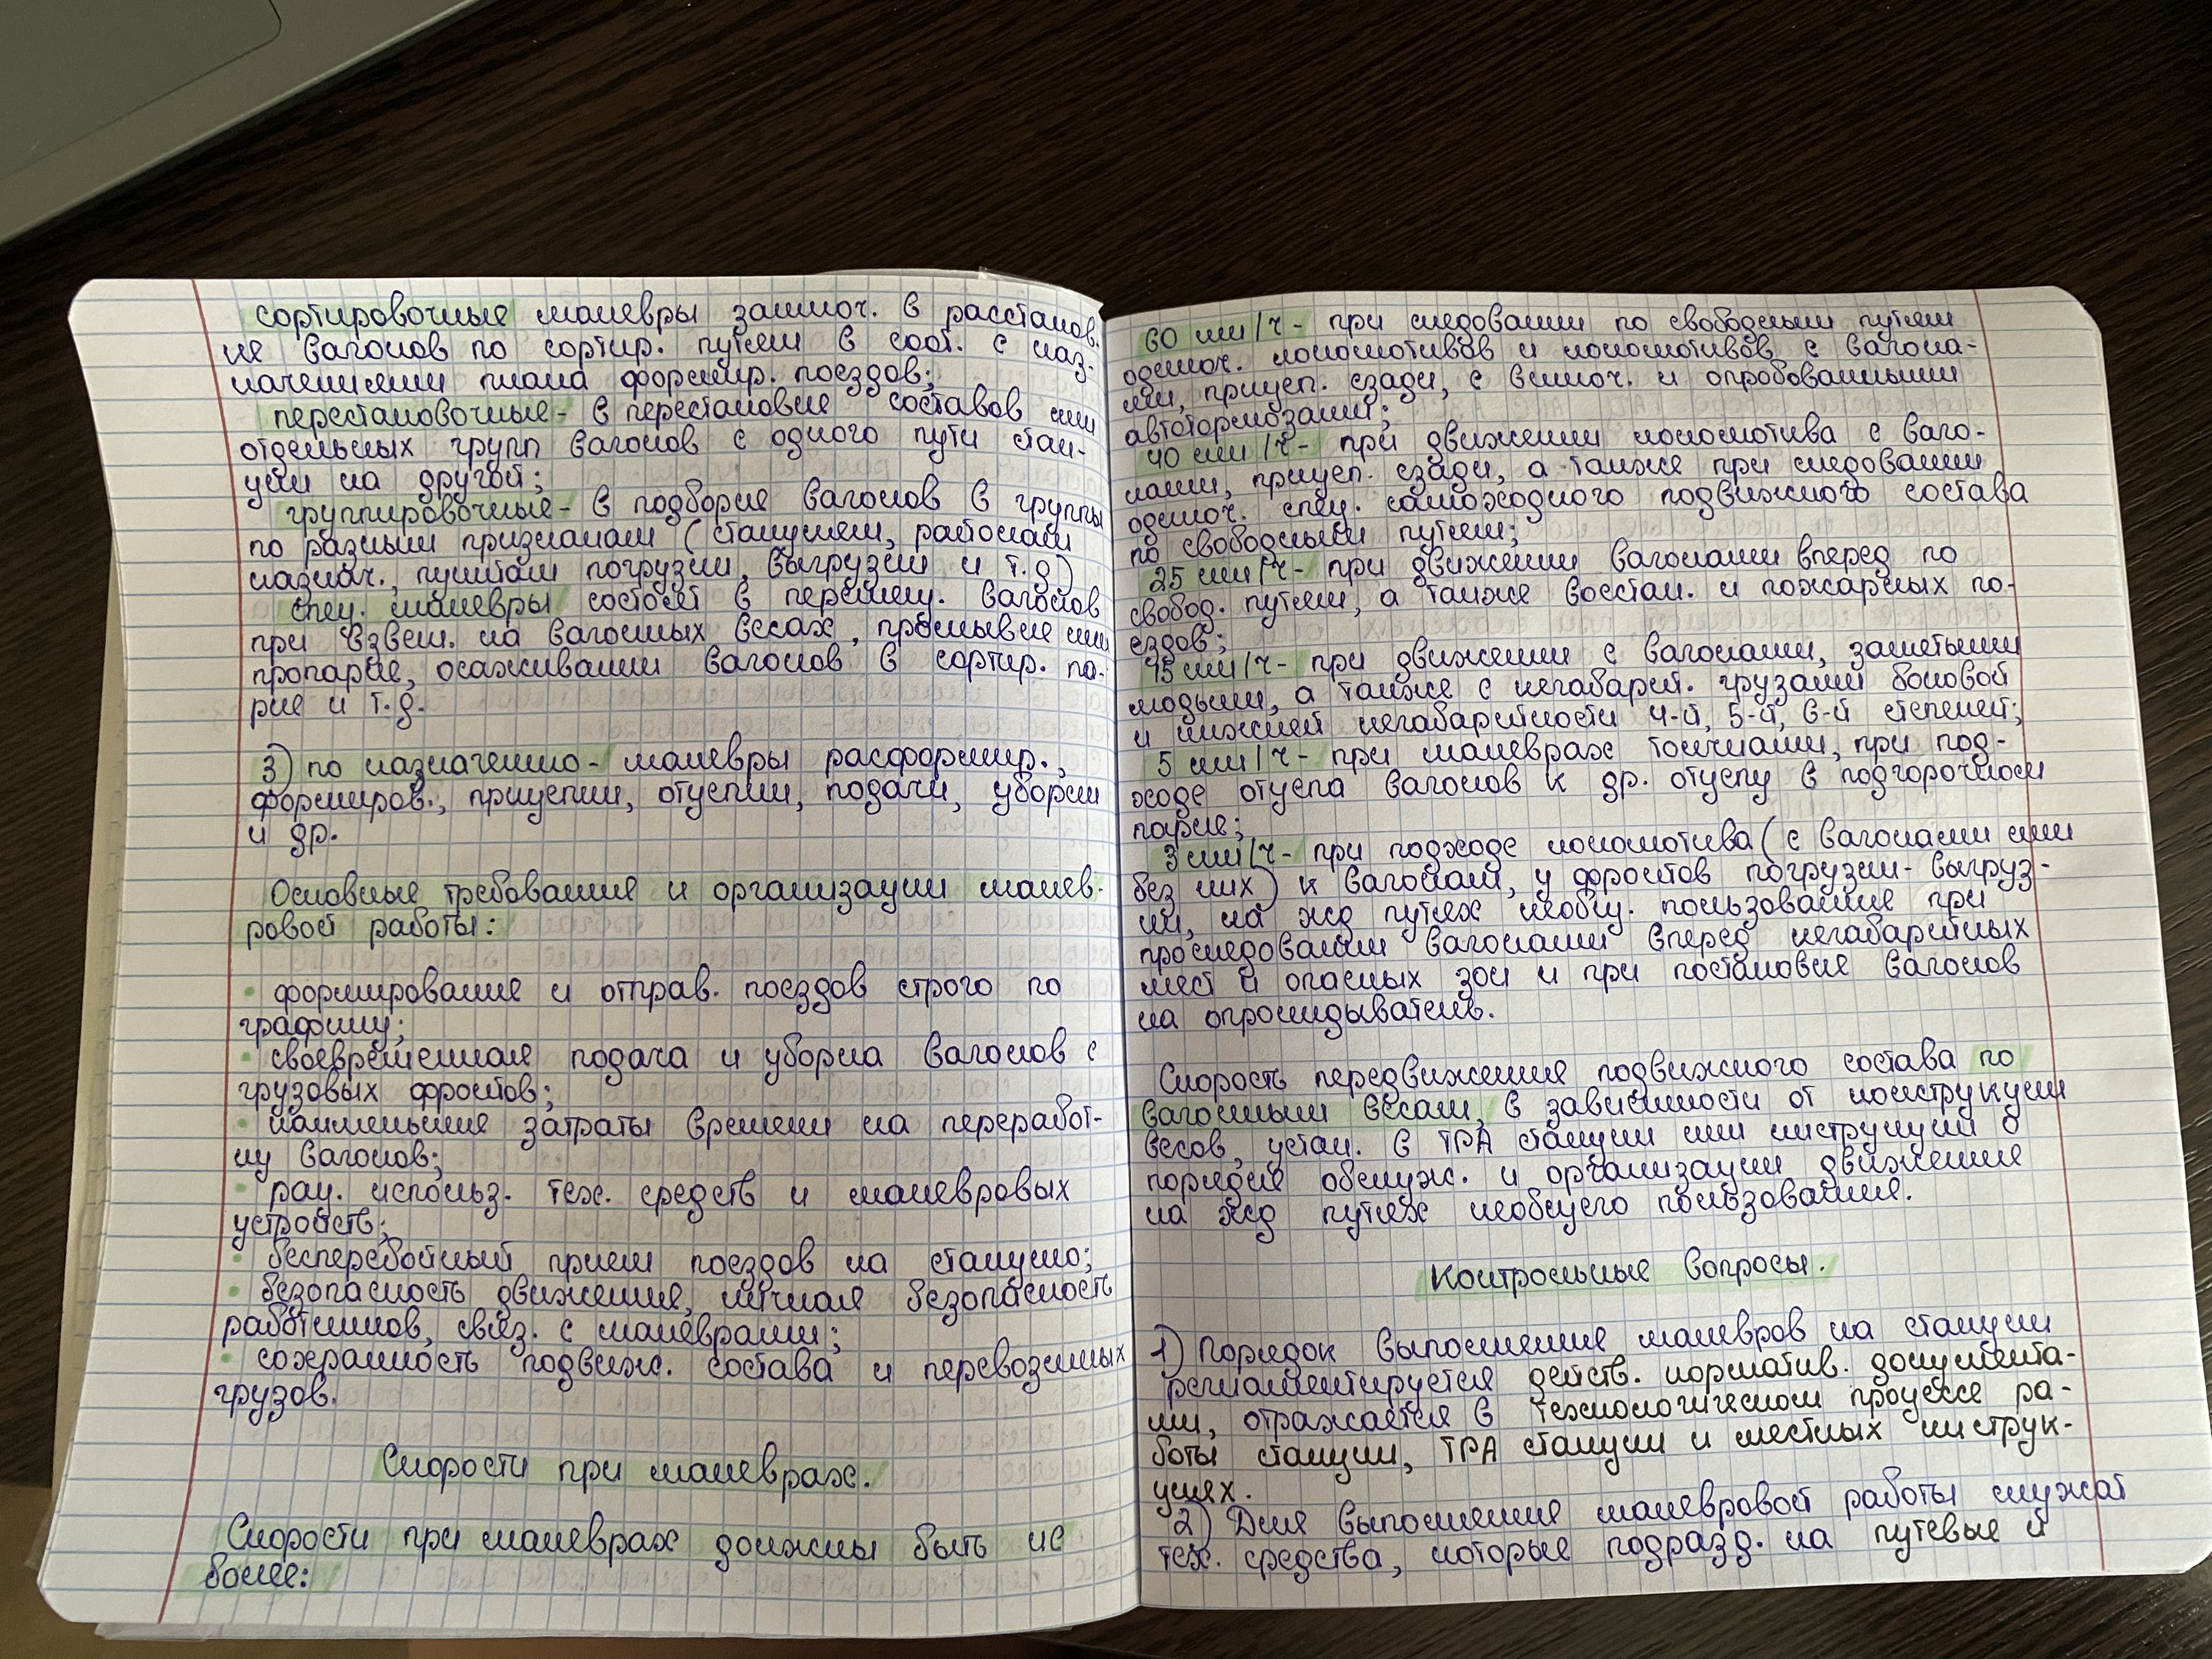 сортировочные маневры заключ. в расстанов.
ке вагонов по сортир. путям в соот. с наз-
начениями плана формир. поездов;
перестановочные - в перестановке составов или
отдельных групп вагонов с одного пути стан-
ции на другой;
группировочные - в подборке вагонов в группы
по разным признакам (станциям, районам
назнач., пунктам погрузки, выгрузки и т.д)
спец. маневры состоят в перемещ. вагонов
при взвеш. на вагонных весах, промывке или
пропарке, осаживании вагонов в сортир. па-
рке и т.д.
3) по назначению - маневры расформир.,
формиров., прицепки, отцепки, подачи, уборки
и др.
Основные требования к организации манев-
ровой работы:
• формирование и отправ. поездов строго по
графику;
• своевременная подача и уборка вагонов с
грузовых фронтов;
• наименьшие затраты времени на переработ-
ку вагонов;
• рац. использ. тех. средств и маневровых
устройств;
• бесперебойный прием поездов на станцию;
• безопасность движения, личная безопасность
работников, связ. с маневрами;
• сохранность подвиж. состава и перевозимых
грузов.
Скорости при маневрах.
Скорости при маневрах должны быть не
более:
60 км/ч - при следовании по свободным путям
одиноч. локомотивов и локомотивов с вагона-
ми, прицеп. сзади, с включ. и опробованными
автотормозами;
40 км/ч - при движении локомотива с ваго-
нами, прицеп. сзади, а также при следовании
одиноч. спец. самоходного подвижного состава
по свободным путям;
25 км/ч - при движении вагонами вперед по
свобод. путям, а также восстан. и пожарных по-
ездов;
15 км/ч - при движении с вагонами, занятыми
людьми, а также с негабарит. грузами боковой
и нижней негабаритности 4-й, 5-й, 6-й степеней;
5 км/ч - при маневрах толчками, при под-
ходе отцепа вагонов к др. отцепу в подгорочном
парке;
3 км/ч - при подходе локомотива (с вагонами или
без них) к вагонам, у фронтов погрузки-выгруз-
ки, на жд путях необщ. пользования при
проследовании вагонами вперед негабаритных
мест и опасных зон и при постановке вагонов
на опрокидыватель.
Скорость передвижения подвижного состава по
вагонным весам, в зависимости от конструкции
весов, устан. в ТРА станции или инструкции о
порядке обслуж. и организации движения
на жд путях необщего пользования.
Контрольные вопросы.
1) Порядок выполнения маневров на станции
регламентируется действ. норматив. документа-
ми, отражается в технологическом процессе ра-
боты станции, ТРА станции и местных инструк-
циях.
2) Для выполнения маневровой работы служат
тех. средства, которые подразд. на путевые и